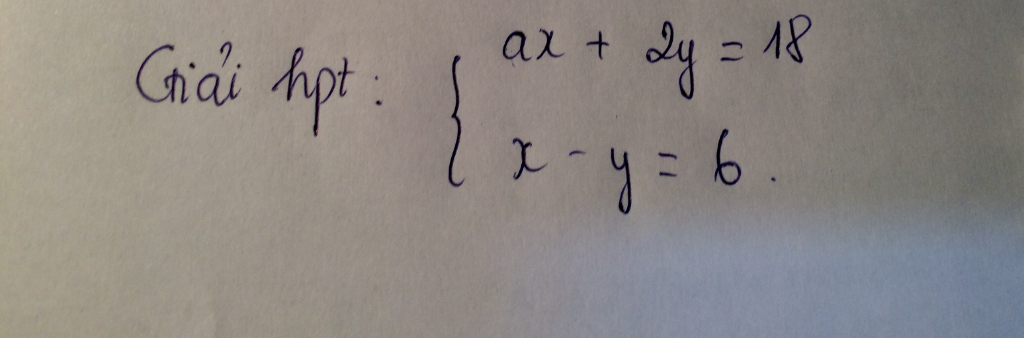 Giải hpt: { ax + 2y = 18
x - y = 6.